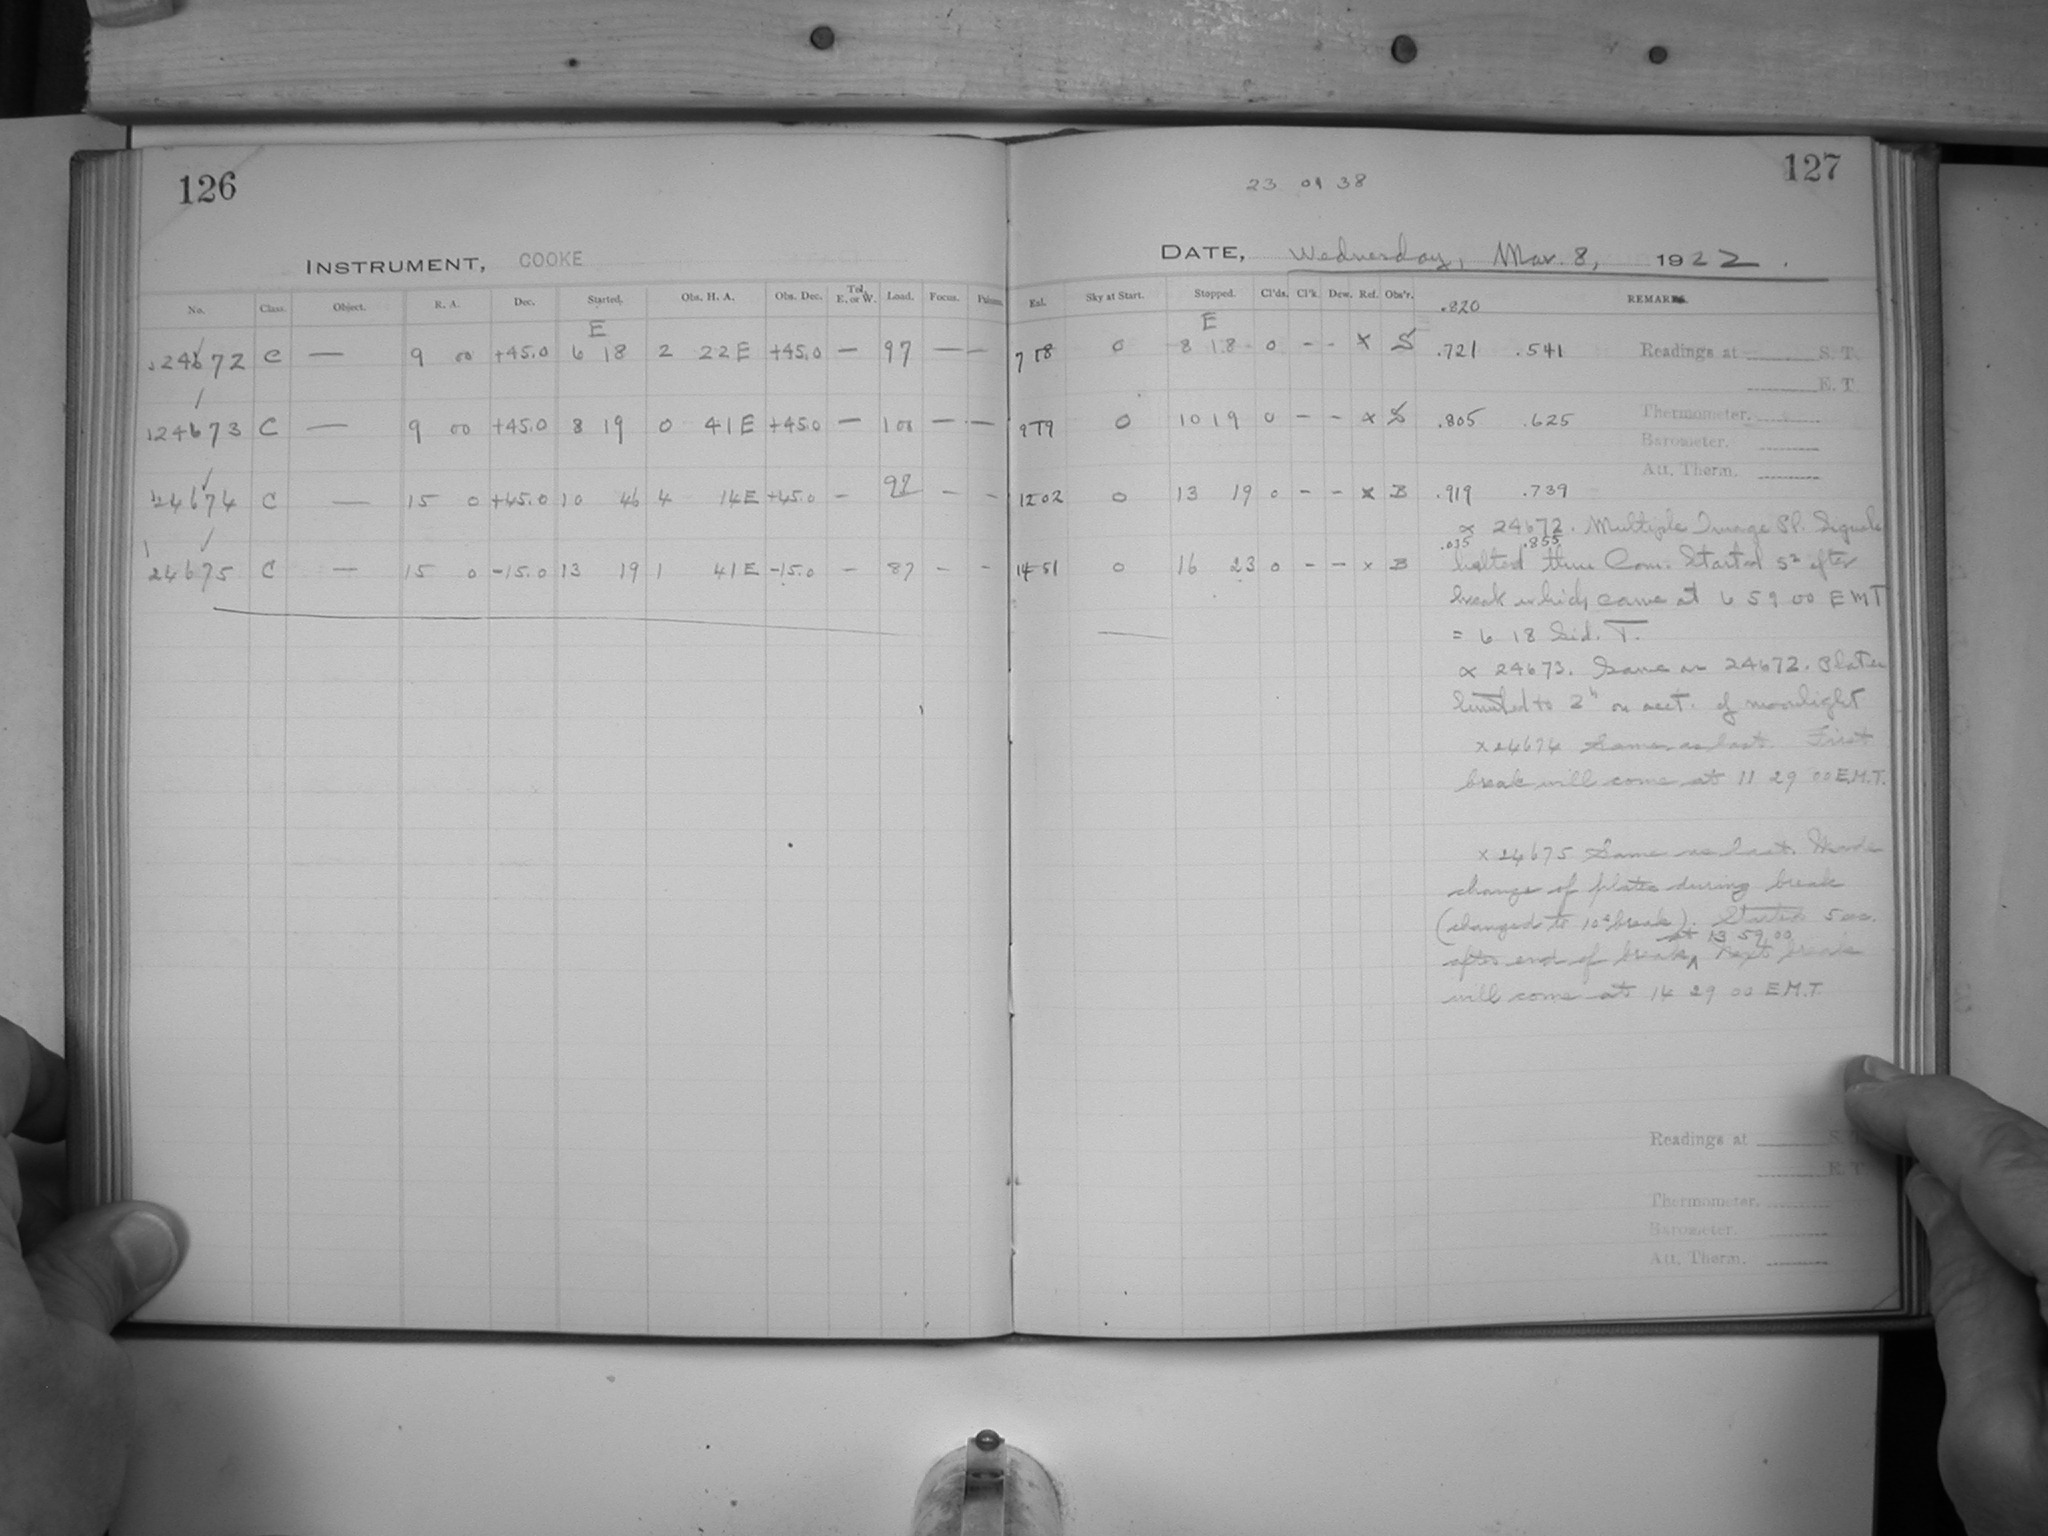 126
INSTRUMENT, COOKE
No. Class. Object. R. A. Dec. Started. Obs. H. A. Obs. Dec. Tel. E. or W. Load. Focus.
E
24672 C — 9 00 +45.0 6 18 2 22E +45.0 — 97 — —
24673 C — 9 00 +45.0 8 19 0 41E +45.0 — 100 — —
24674 C — 15 0 +45.0 10 46 4 14E +45.0 - - -
24675 C — 15 0 -15.0 13 19 1 41E -15.0 - 87 - -
127
23 01 38
DATE, Wednesday, Mar. 8, 1922.
Exl. Sky at Start. Stopped. Cl'ds. Cl'k. Dew. Ref. Obs'r. REMARKS.
.820
E
7 18 0 8 18 0 - - x S .721 .541
Readings at S. T.
E. T.
9 19 0 10 19 0 - - x S .805 .625
Thermometer.
Barometer.
Att. Therm.
12 02 0 13 19 0 - - x B .919 .739
x 24672. Multiple Image Pl. Signals
.035 .855
14 51 0 16 23 0 - - x B
halted thru Com. Started 5s after
break which came at 6 59 00 EMT
= 6 18 Sid. T.
x 24673. Same as 24672. Plates
limited to 2h on acct. of moonlight
x 24674 Same as last. First
break will come at 11 29 00 E.M.T.
x 24675 Same as last. Made
change of plates during break
(changed to 10s break). Started 5 sec.
at 13 59 00
after end of break ^ Next break
will come at 14 29 00 E.M.T.
Readings at S. T.
E. T.
Thermometer.
Barometer.
Att. Therm.